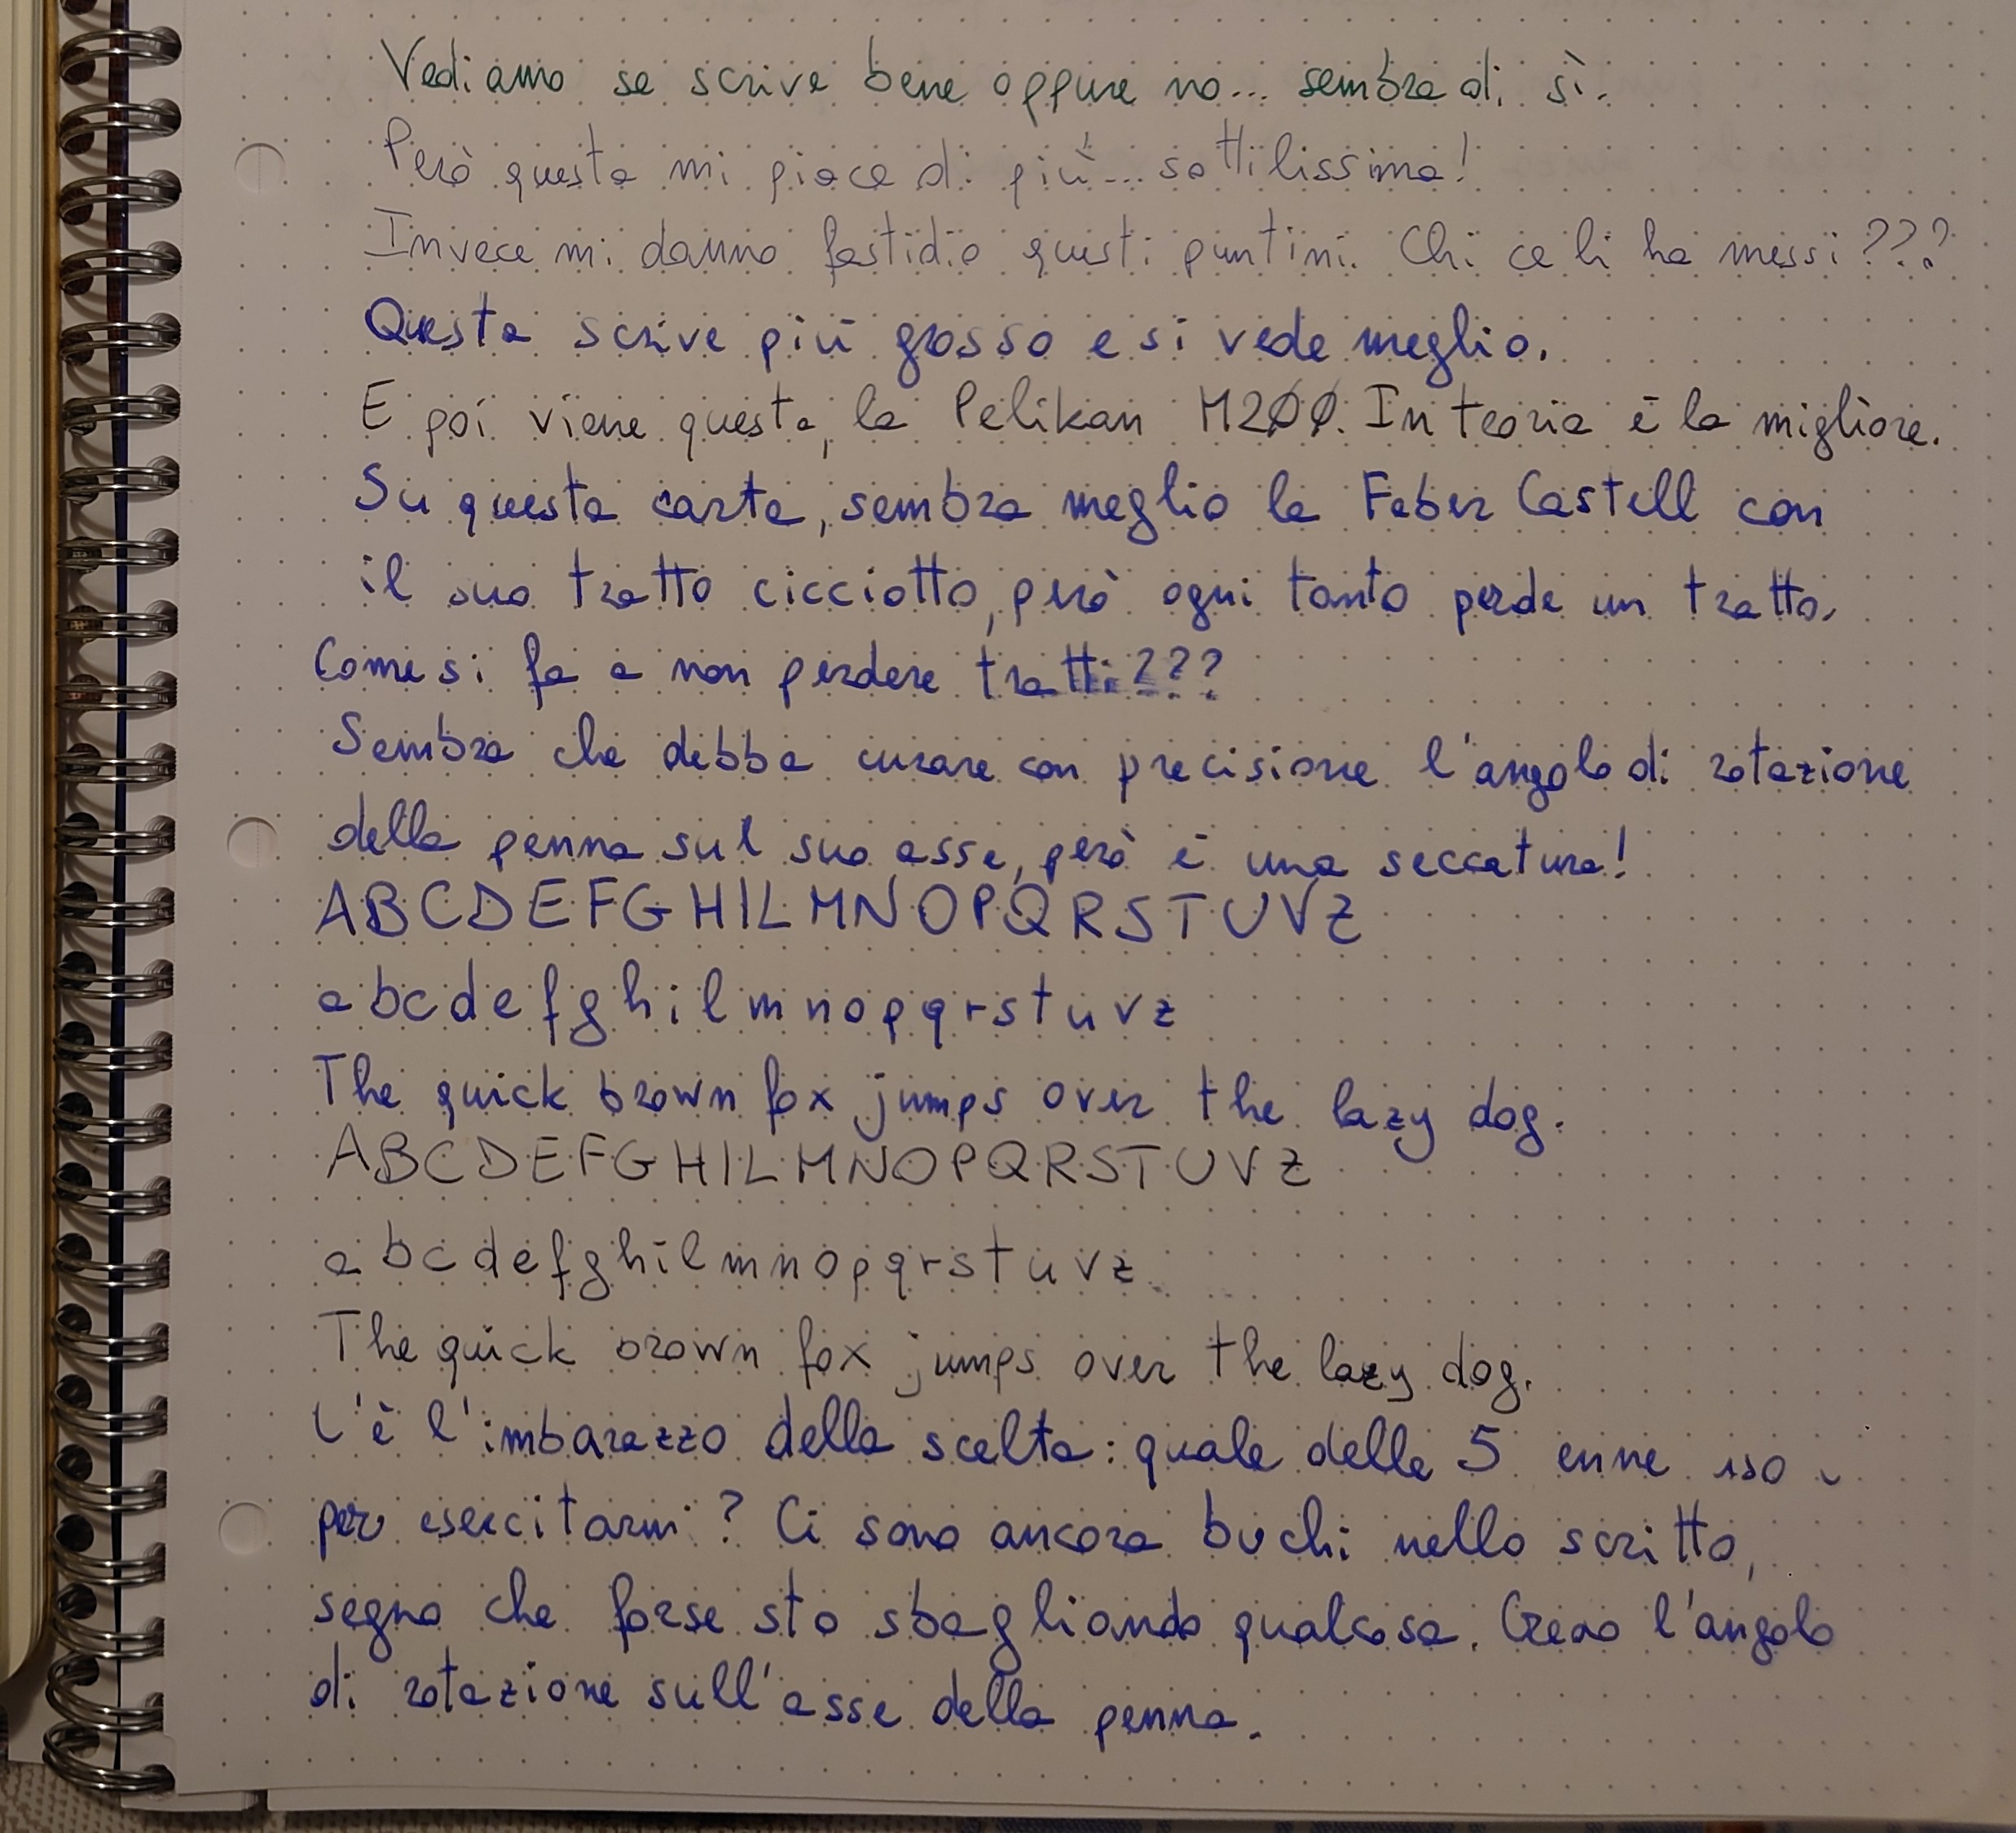 Vediamo se scrive bene oppure no... sembra di sì.
Però questa mi piace di più... sottilissima!
Invece mi danno fastidio questi puntini. Chi ce li ha messi ???
Questa scrive più grosso e si vede meglio.
E poi viene questa, la Pelikan M200. In teoria è la migliore.
Su questa carta, sembra meglio la Faber Castell con
il suo tratto cicciotto, però ogni tanto perde un tratto.
Come si fa a non perdere tratti???
Sembra che debba curare con precisione l'angolo di rotazione
della penna sul suo asse, però è una seccatura!
ABCDEFGHILMNOPQRSTUVZ
abcdefghilmnopqrstuvz
The quick brown fox jumps over the lazy dog.
ABCDEFGHILMNOPQRSTUVZ
abcdefghilmnopqrstuvz
The quick brown fox jumps over the lazy dog.
C'è l'imbarazzo della scelta: quale delle 5 enne uso
per esercitarmi? Ci sono ancora buchi nello scritto,
segno che forse sto sbagliando qualcosa. Credo l'angolo
di rotazione sull'asse della penna.